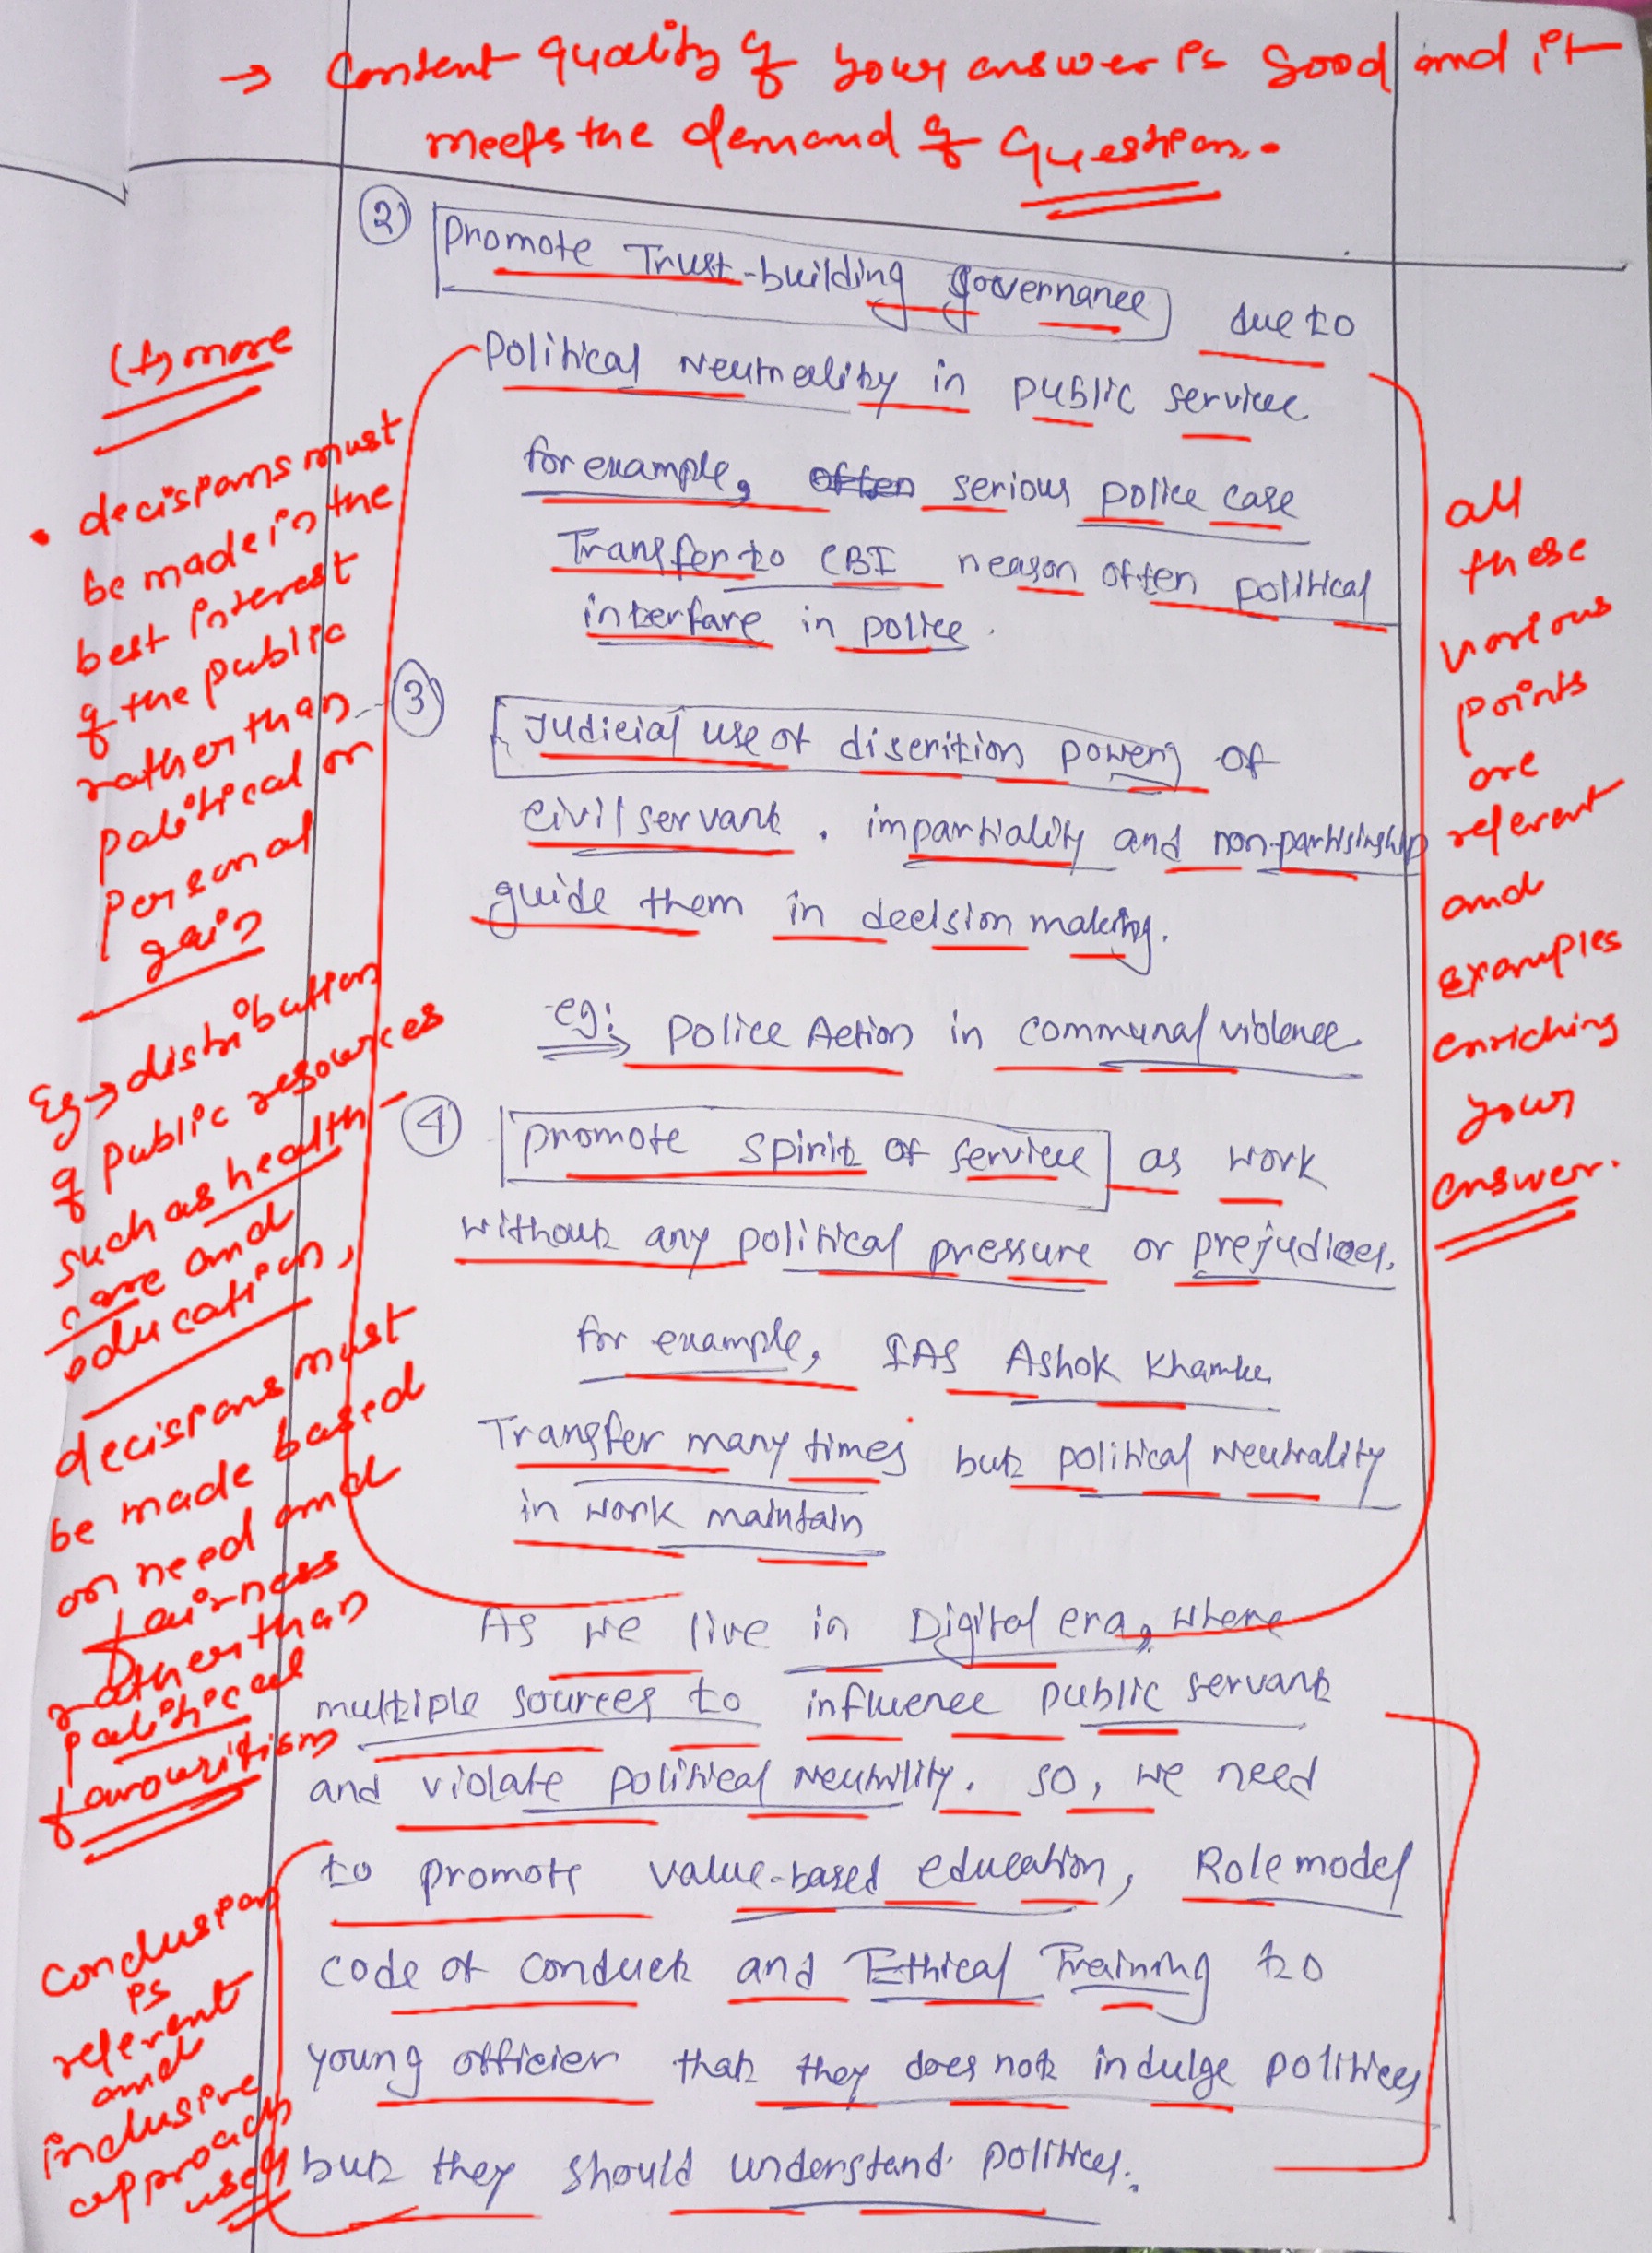 → Content quality of your answer is Good and it
meets the demand of Question.
② Promote Trust-building governance due to
Political Neutrality in public service
for example, often serious police case
Transfer to CBI reason often political
interfare in police.
③ Judicial use of discrition power of
civil servant. impartiality and non-partisinship
guide them in decision making.
eg: Police Action in communal violence
④ promote spirit of service as work
without any political pressure or prejudices.
for example, IAS Ashok Khemke
Transfer many times but political Neutrality
in work maintain
As we live in Digital era, where
multiple sources to influence public servant
and violate political Neutrility. so, we need
to promote value-based education, Role model
code of conduct and Ethical Training to
young officier that they does not indulge politices
but they should understand political.
(+) more
• decisions must
be made in the
best interest
of the public
rather than
political or
personal
gain
Eg → distribution
of public resources
such as health-
care and
education,
decisions must
be made based
on need and
fairness
rather than
political
favouritism
Conclusion
is
referent
and
inclusive
approach
used
all
these
various
points
are
referent
and
examples
enriching
your
answer.